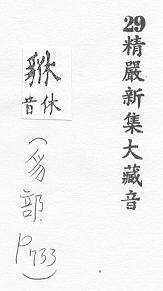 29精嚴新集大藏音
貅
音休
(豸部. P733)